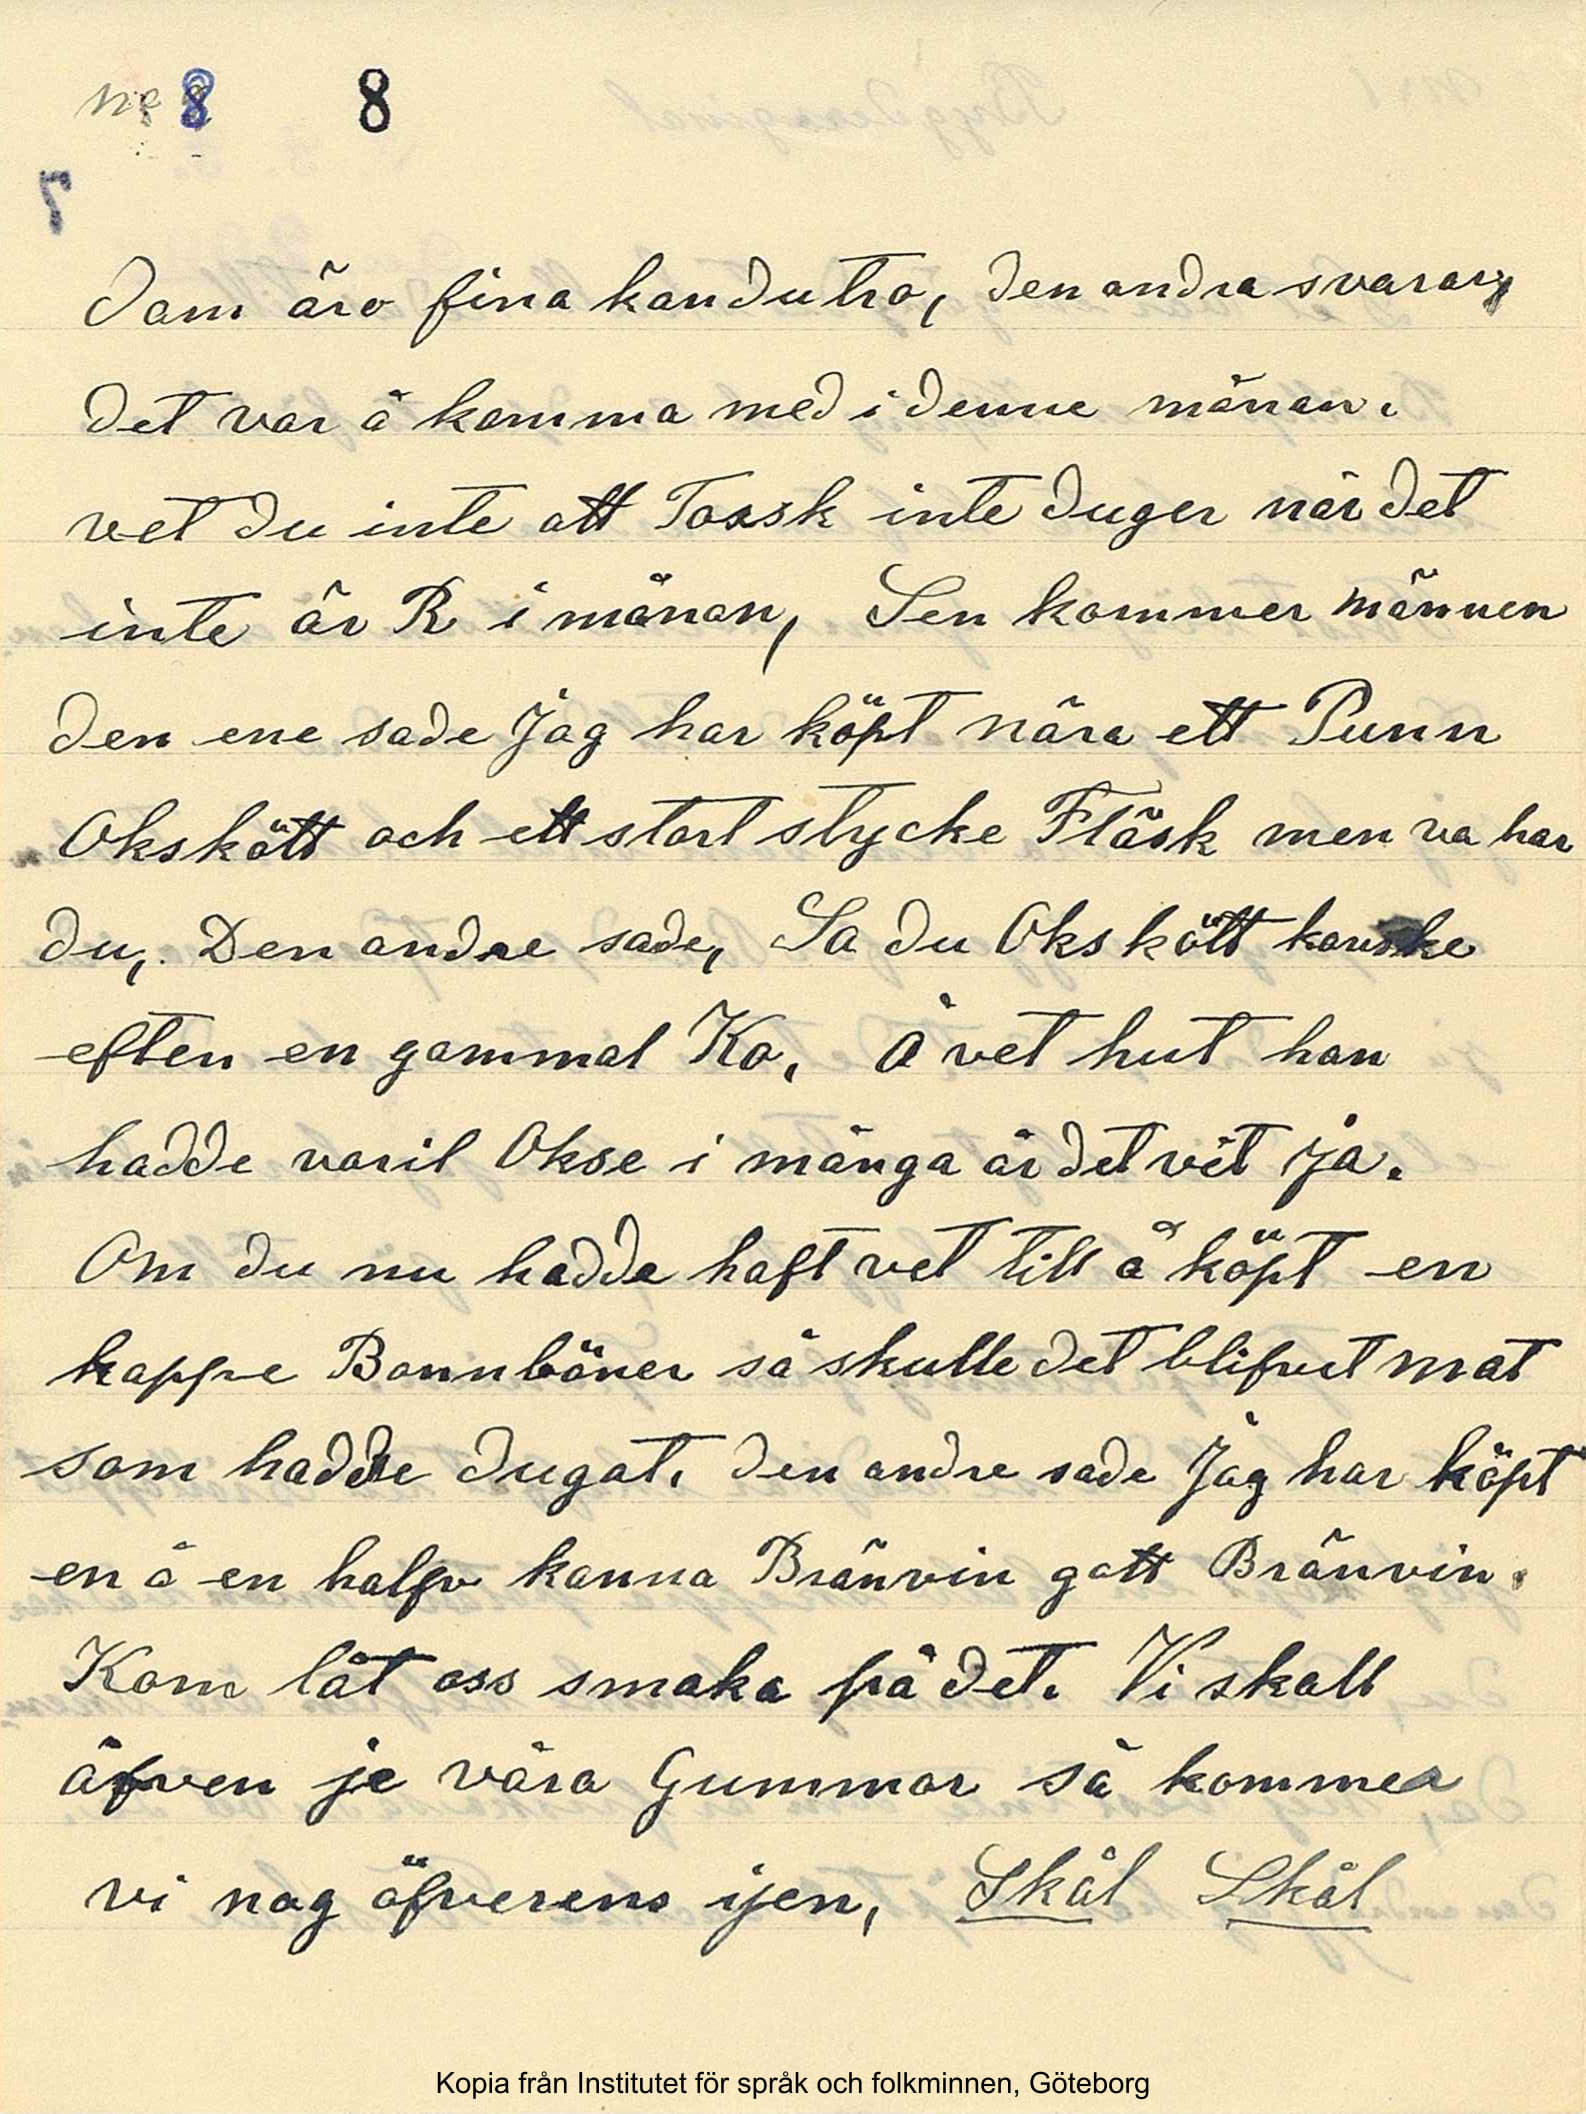 No 8 8
7
Dom äro fina kan du tro, den andra svarar,
det var å komma med i denne månan.
vet du inte att Tossk inte duger när det
inte är R i månan, Sen kommer männen
den ene sade Jag har köpt nära ett Punn
Okskött och ett stort stycke Fläsk men va har
du, Den andre sade, Sa du Okskött kanske
eften en gammal Ko. Å vet hut han
hadde varit Okse i många år det vet ja.
Om du nu hadde haft vet till å köpt en
kappe Bonnbönor så skulle det blifvet mat
som hadde dugat. den andre sade Jag har köpt
en å en halfv kanna Bränvin gott Bränvin.
Kom låt oss smaka på det. Vi skall
äfven je våra Gummor så kommer
vi nog öfverens ijen, Skål Skål
Kopia från Institutet för språk och folkminnen, Göteborg